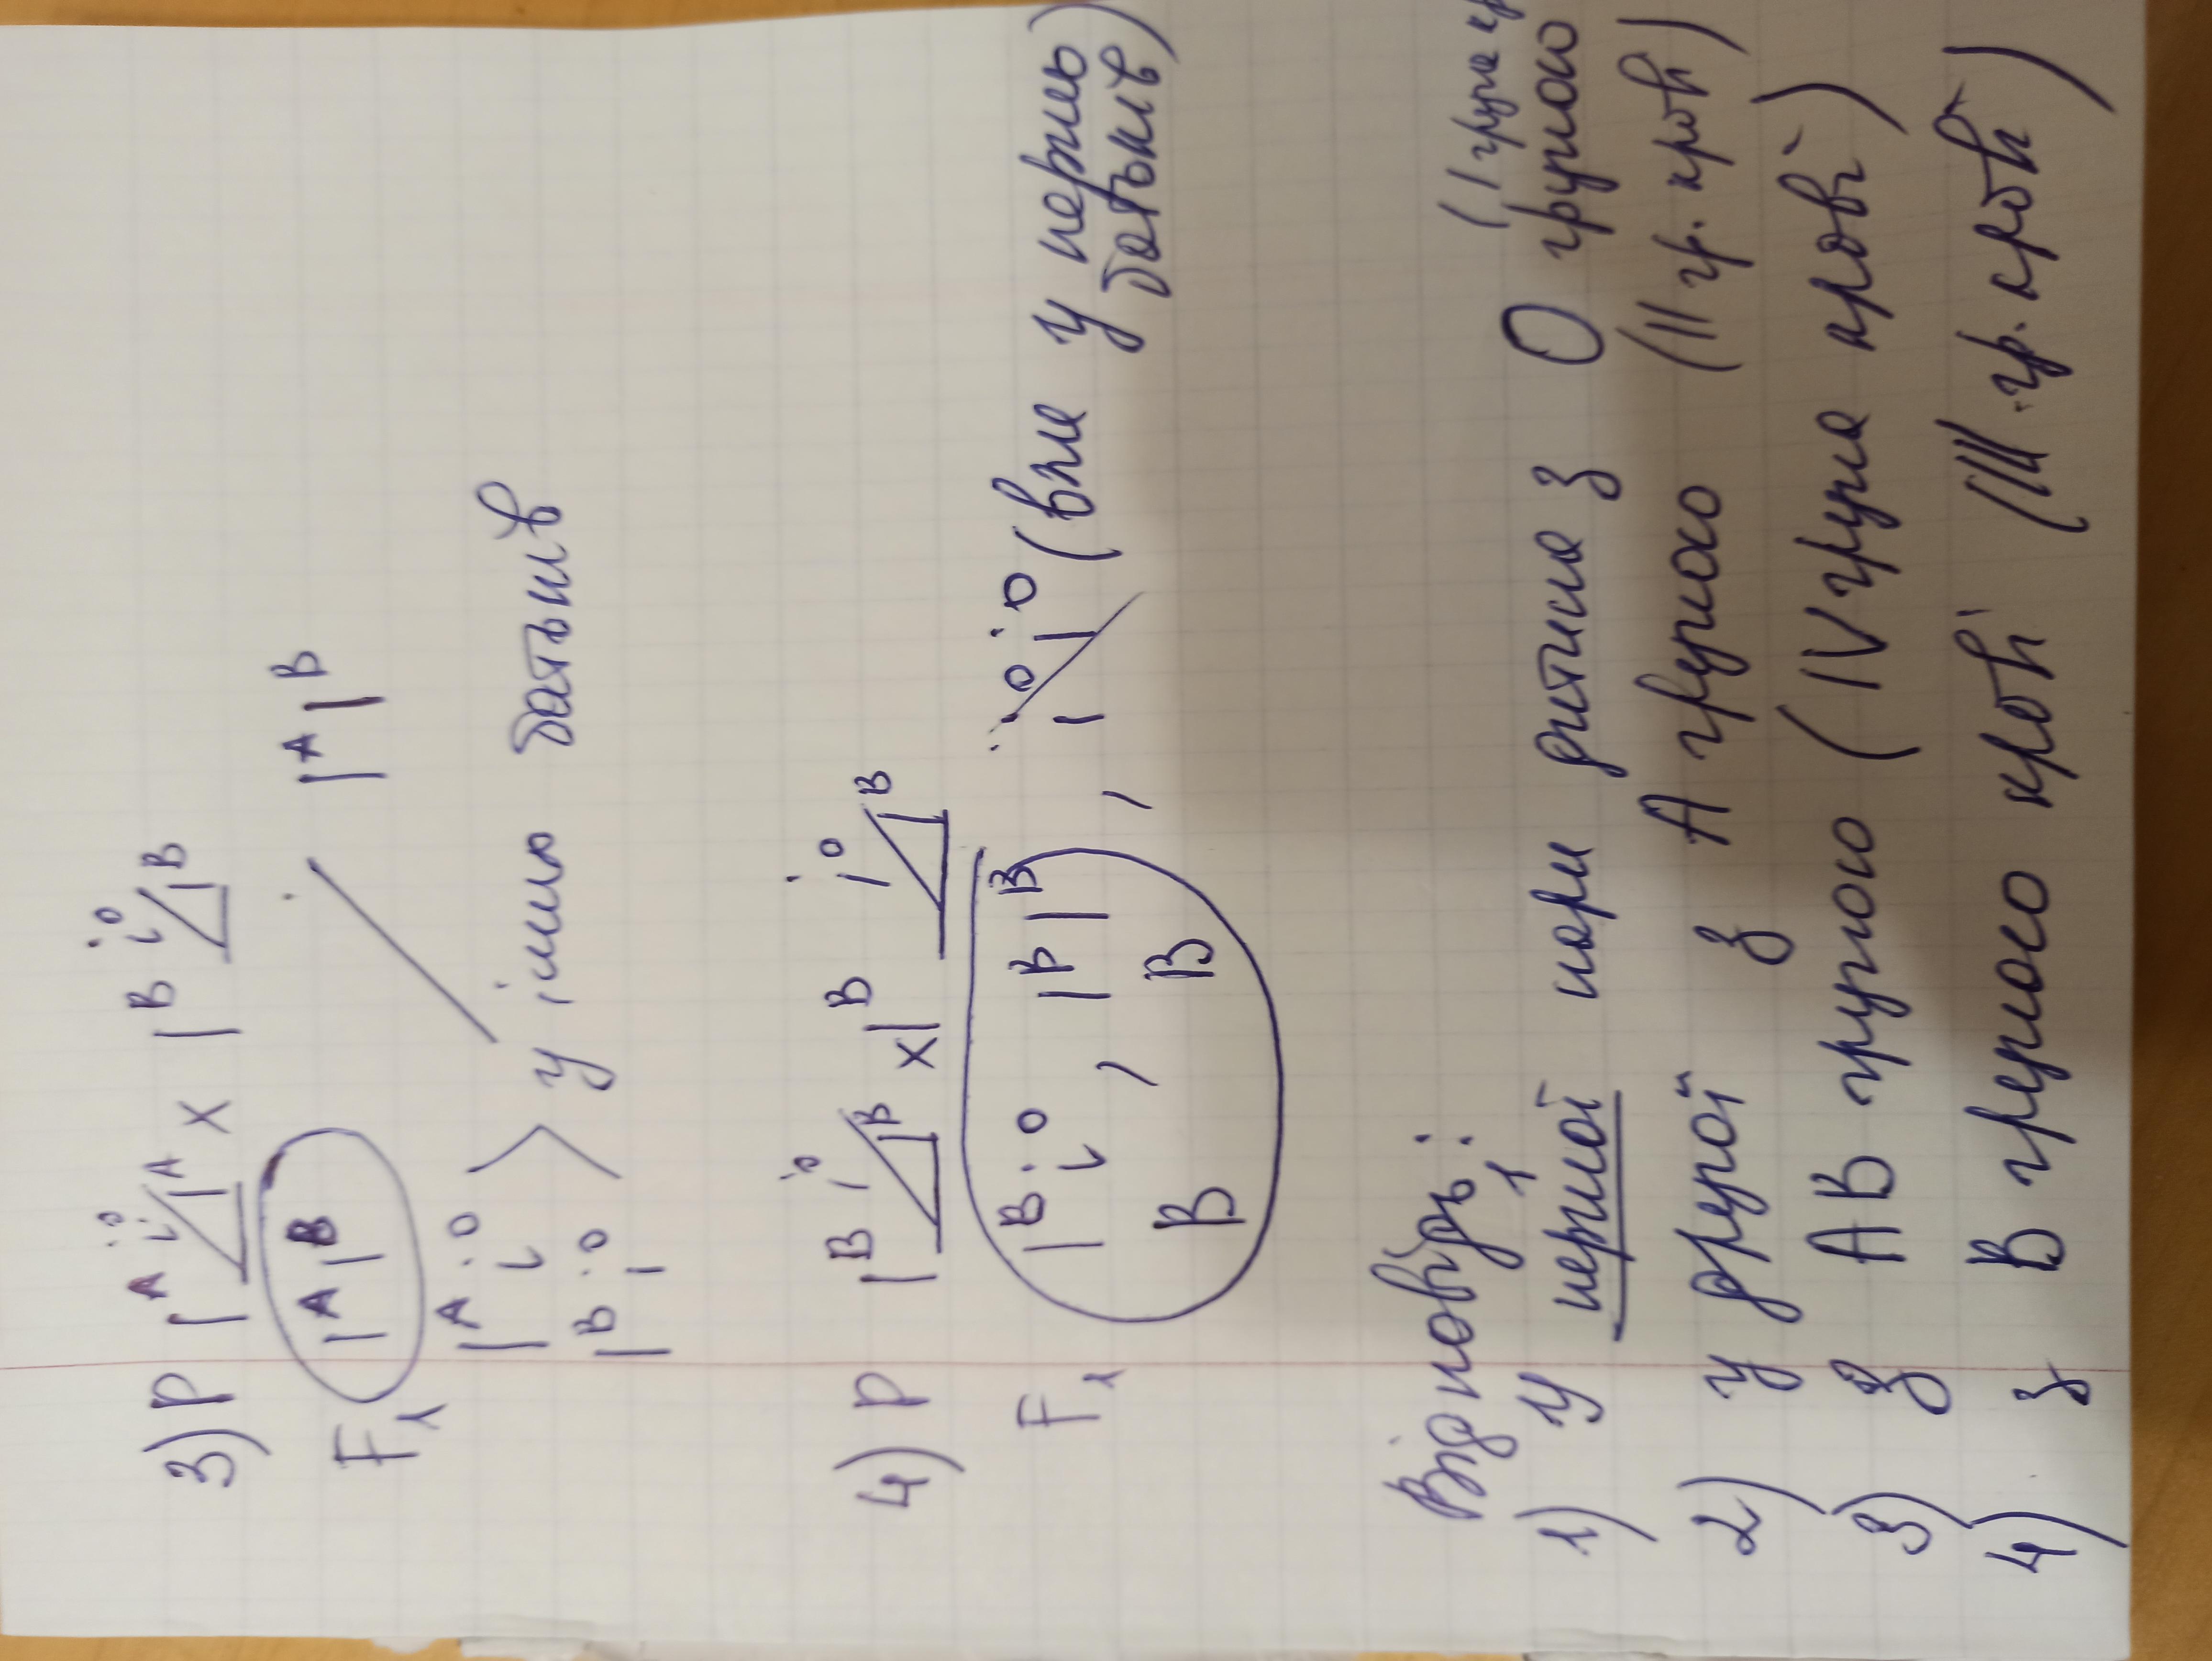 i⁰ i⁰
3) P Iᴬ Iᴬ × Iᴮ Iᴮ
F₁ IᴬIᴮ IᴬIᴮ
Iᴬi⁰
Iᴮi⁰ > у інших батьків
i⁰ i⁰
4) P Iᴮ Iᴮ × Iᴮ Iᴮ
F₁ Iᴮi⁰, IᴮIᴮ, i⁰i⁰ (вже у перших батьків)
B B
Відповідь:
1) у першої пари дитина з О групою (I група
2) у другої з А групою (II гр. крові)
3) з АВ групою (IV група крові)
4) з В групою крові (III гр. крові)